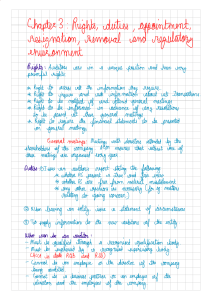 Chapter 3 Rights, duties, appointment,
resignation, removal and regulatory
environment
Rights: Auditors are in a unique position and have very
powerful rights
* Right to access all the information they require
* Right to require and seek information about all transactions
* Right to be notified of and attend general meetings
* Right to be informed in advance of any resolutions
to be passed at that general meeting
* Right to require the financial statements to be presented
in general meeting.
General meetings: Meetings with directors attended by the
shareholders of the company
meetings are organised every year.
Duties: (1) Issue an auditors report stating the following
→ whether it presents a true and fair view
→ whether it is free from material misstatement
→ any other opinions as necessary (for eg matters
relating to going concern).
(2) When leaving an entity issue a statement of circumstances
(3) To supply information to the new auditors of the entity
Who can be an auditor:
* Must be qualified through a recognised qualification body
* Must be registered by a recognised supervisory body
(Acca is both RQB and RSB)
* Cannot be an employee or the director of the company
being audited
* Cannot be a business partner or an employee of the
directors and the employees of the company